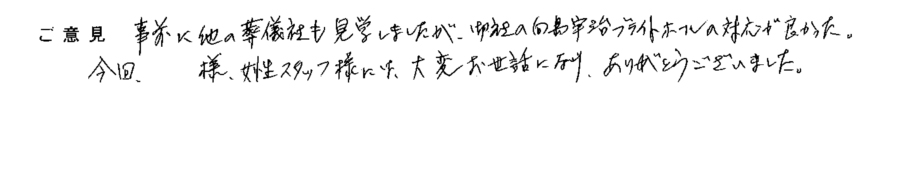 ご意見 事前に他の葬儀社も見学しましたが、御社の向島宇治ブライトホールの対応が良かった。
今回、 様、女性スタッフ様には、大変お世話になり、ありがとうございました。